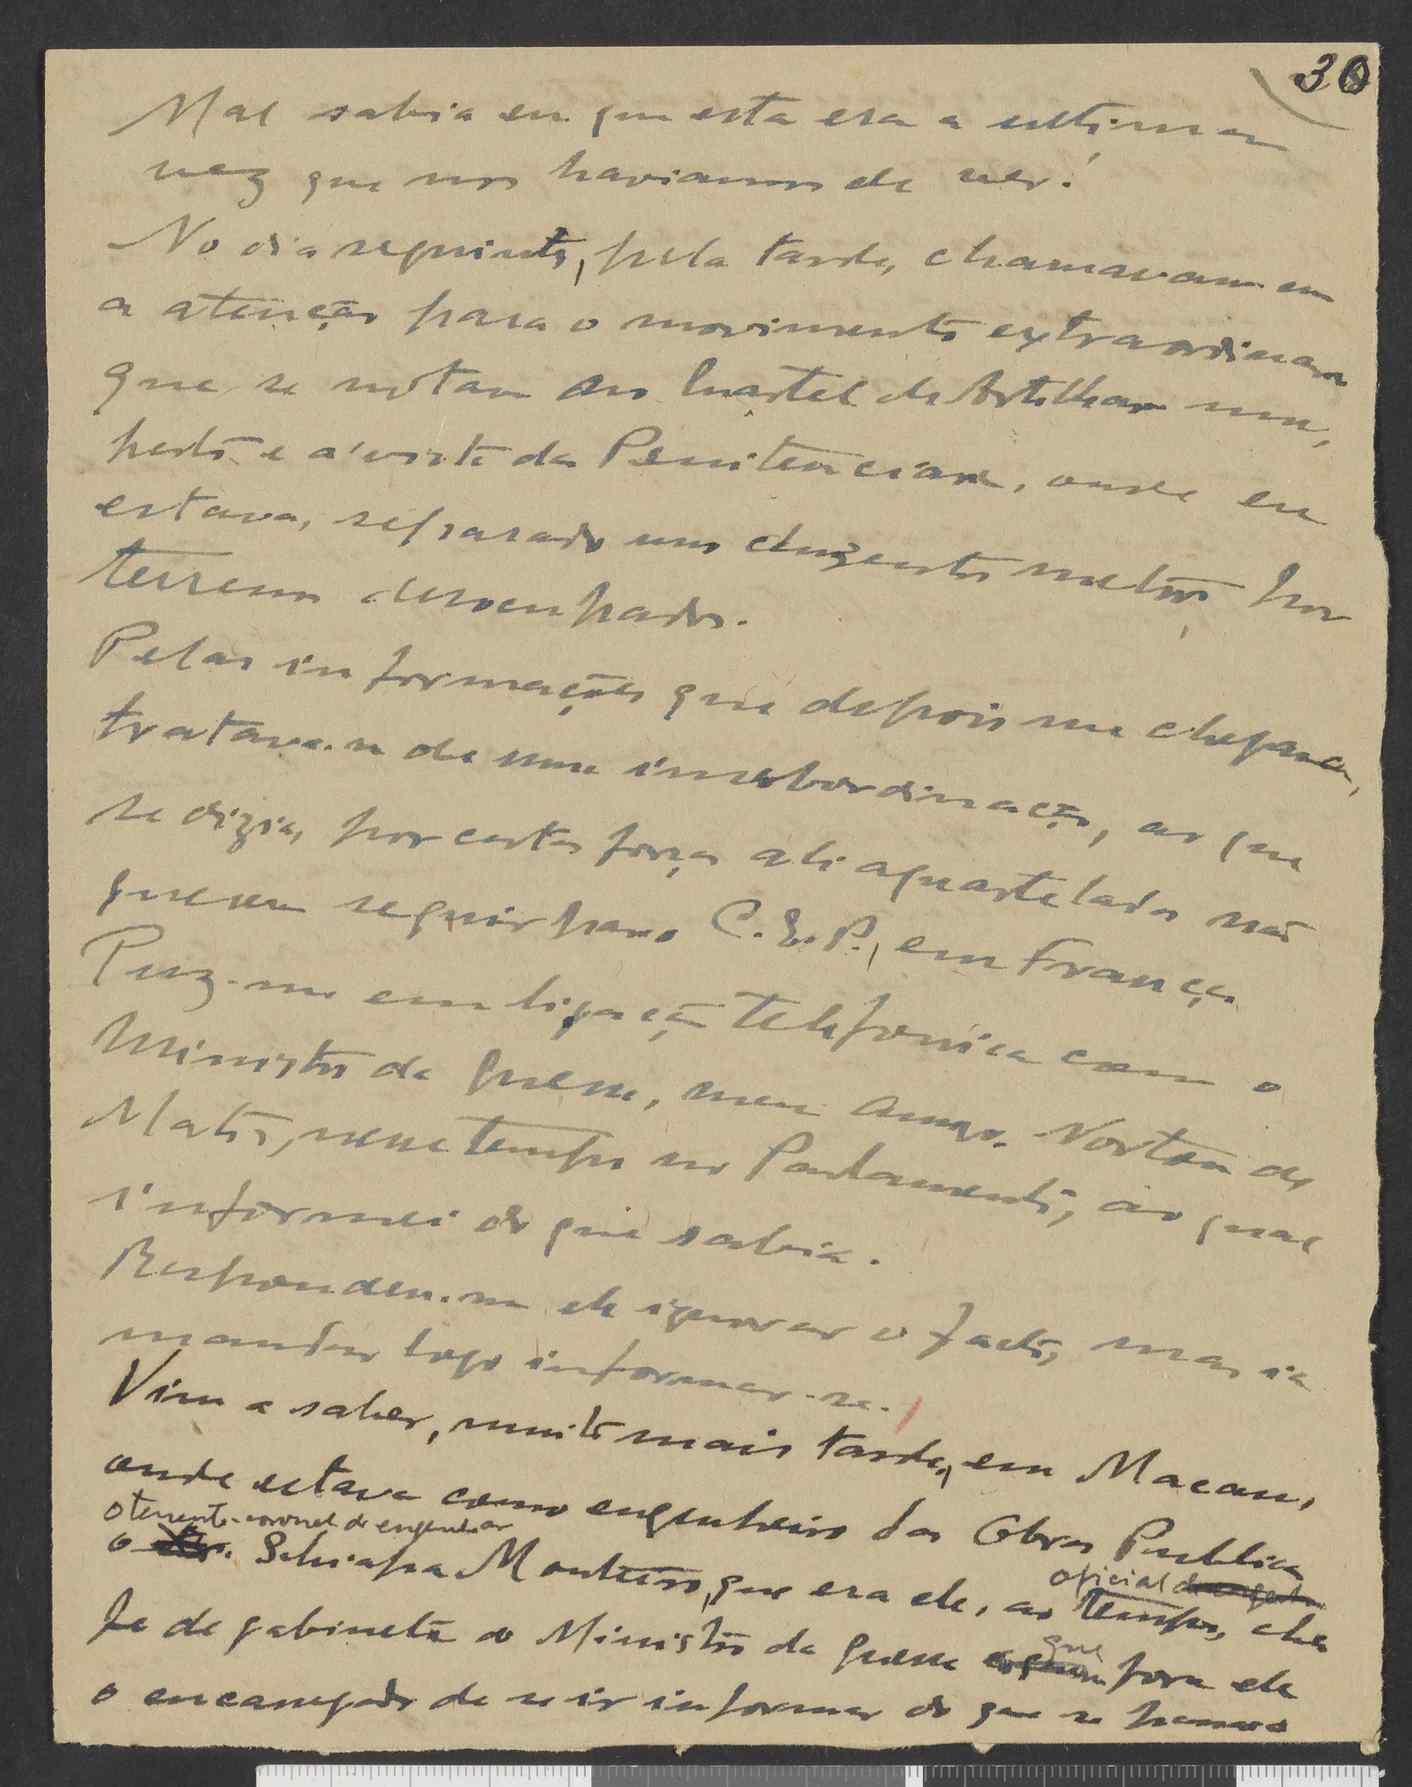 30
Mal sabia eu que esta era a ultima
vez que nos haviamos de ver!
No dia seguinte, pela tarde, chamavam-me
a atenção para o movimento extraordinario
que se notava no Quartel de Artelharia um,
perto e á vista da Penitenciaria, onde eu
estava, separado uns duzentos metros por
terreno desocupado.
Pelas informações que depois me chegaram,
tratava-se de uma insubordinação, ao que
se dizia, por certas forças ali aquarteladas não
querem seguir para o C.E.P., em França.
Puz-me em ligação telefonica com o
Ministro da guerra, meu amigo Norton de
Matos, nesse tempo no Parlamento, ao qual
informei do que sabia.
Respondeu-me ele ignorar o facto, mas ia
mandar logo informar-se.
Vim a saber, muito mais tarde, em Macau,
onde estava como engenheiro das Obras Publicas
o tenente-coronel de engenharia
o Schiapa Monteiro, que era ele, ao tempo, che
oficial
fe de gabinete do Ministro da guerra fora ele
que
o encarregado de se ir informar do que se passava